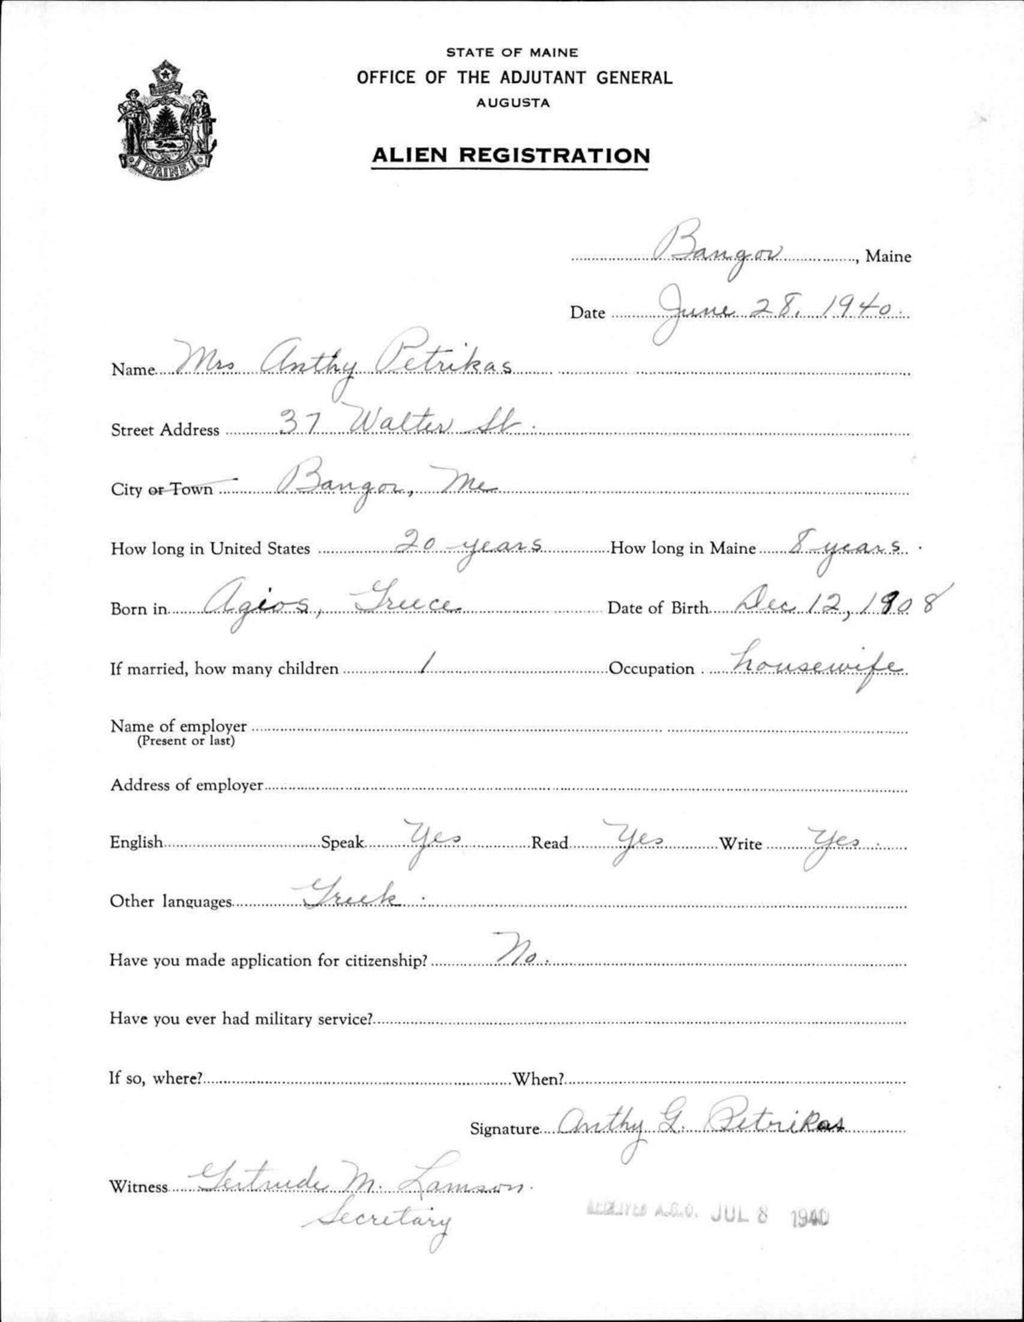 STATE OF MAINE
OFFICE OF THE ADJUTANT GENERAL
AUGUSTA
ALIEN REGISTRATION
MAINE
Bangor, Maine
Date June 28, 1940.
Name Mrs Anthy Petrikas
Street Address 37 Walter St.
City or Town Bangor, Me
How long in United States 20 years How long in Maine 8 years.
Born in Agios, Greece Date of Birth Dec 12, 1908
If married, how many children 1 Occupation housewife
Name of employer
(Present or last)
Address of employer
English Speak Yes Read Yes Write Yes.
Other languages Greek.
Have you made application for citizenship? No.
Have you ever had military service?
If so, where? When?
Signature Anthy G. Petrikas
Witness Gertrude M. Lamson.
Secretary
RECEIVED A.G.O. JUL 8 1940